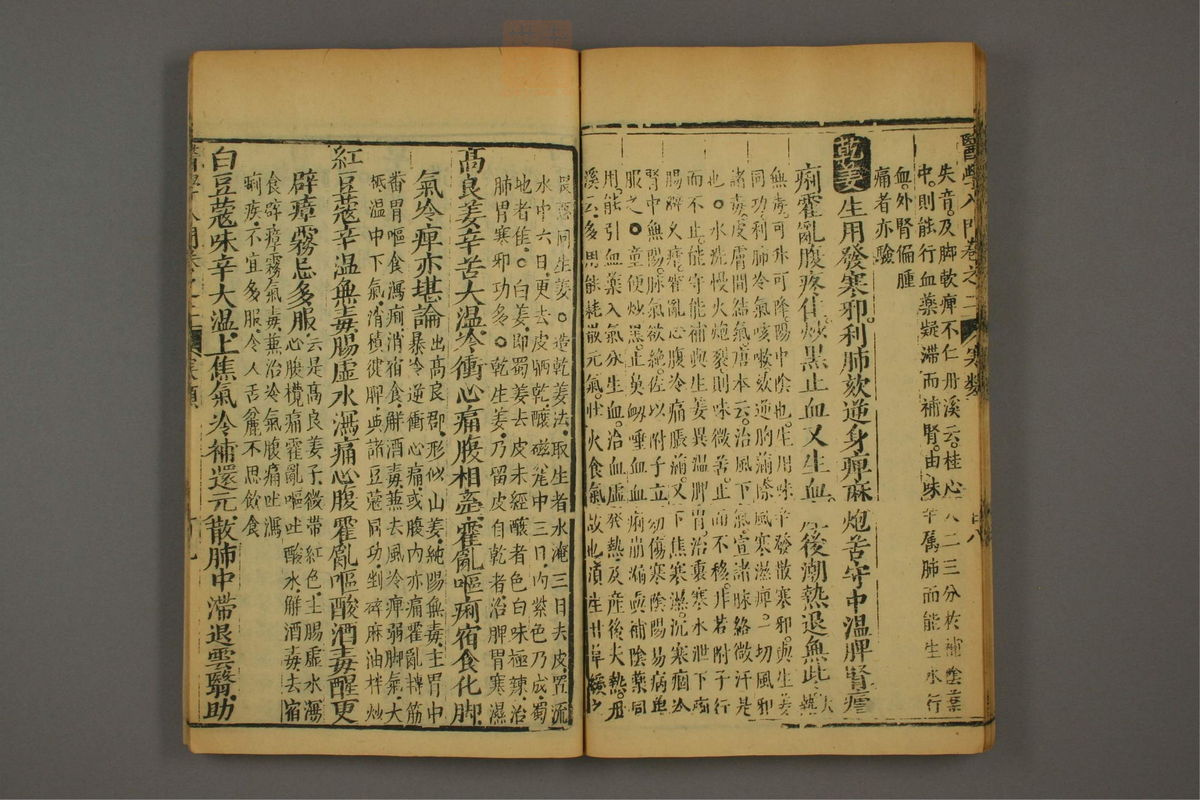 醫學入門卷之二 寒類
失音及脚軟痺不仁丹溪云桂心 二三分於補陰葉
中則能行血藥凝滯而補腎由味辛屬肺而能生水行
血外腎偏腫
痛者亦驗
乾姜 生用發寒邪利肺欬逆身痺麻炮苦守中溫脾腎瘧
痢霍亂腹疼住炒黑止血又生血 後潮熱退無此
無毒可升可降陽中陰也生用味辛發散寒邪與生姜
同功利肺冷氣咳嗽欬逆胸滿除風寒濕痺一切風邪
諸毒皮膚間結氣唐本云治風下氣宣諸脉絡微汗是
也水洗慢火炮裂則味微苦止而不移非若附子行
而不止能守能補與生姜異溫脾胃治裏寒水泄下痢
腸澼久瘧霍亂心腹冷痛脹滿又下焦寒濕沉寒痼冷
腎中無陽脉氣欲絶佐以附子立 初傷寒陰陽易病單
服之童便炒黑止鼻衄唾血血痢崩漏與補陰藥同
用能引血藥入氣分生血治血虛發熱及產後大熱丹
溪云多用能耗散元氣壯火食氣故也須生甘草緩之
畏惡同生姜造乾姜法取生者水淹三日去皮置流
水中六日更去皮晒乾釀磁瓮中三日內紫色乃成蜀
地者佳白姜即蜀姜去皮未經釀者色白味極辣治
肺胃寒邪功多乾生姜乃留皮自乾者治脾胃寒濕
高良姜辛苦大溫冷衝心痛腹相連霍亂嘔痢宿食化脚
氣冷痺亦堪論 出高良郡形似山姜純陽無毒主胃中
暴冷逆衝心痛或腹內亦痛霍亂轉筋
番胃嘔食瀉痢消宿食解酒毒兼去風冷痺弱脚氣大
抵溫中下氣消積健脾與諸豆蔻同功剉碎麻油拌炒
紅豆蔻辛溫無毒腸虛水瀉痛心腹霍亂嘔酸酒毒醒更
辟瘴霧忌多服 云是高良姜子微帶紅色主腸虛水瀉
心腹攪痛霍亂嘔吐酸水解酒毒去宿
食辟瘴霧氣毒兼治冷氣腹痛吐瀉
痢疾不宜多服令人舌麄不思飲食
白豆蔻味辛大溫上焦氣冷補還元散肺中滯退雲翳助